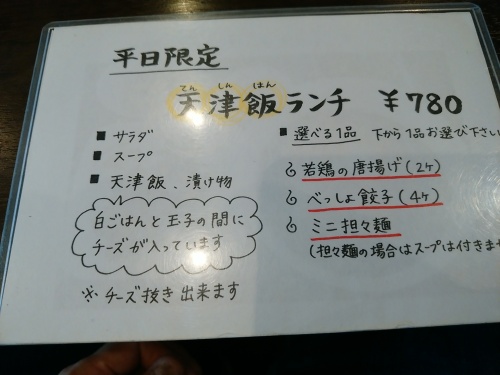 平日限定
てん しん はん
天津飯ランチ ￥780
■ サラダ
■ スープ
■ 天津飯、漬け物
白ごはんと玉子の間に
チーズが入っています
※ チーズ抜き出来ます
■ 選べる1品 下から1品お選び下さい
若鶏の唐揚げ(2ヶ)
べっしょ餃子(4ヶ)
ミニ担々麺
(担々麺の場合はスープは付きませ